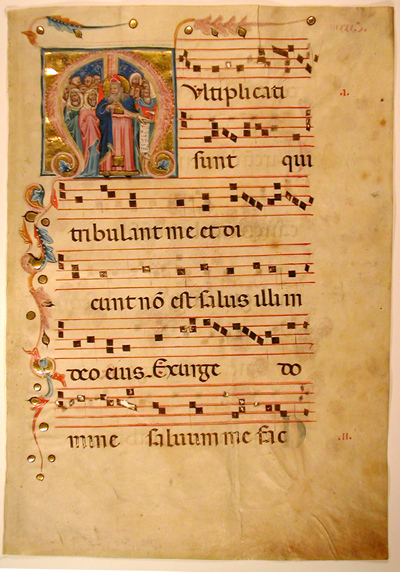 Multiplicati
sunt qui
tribulant me et di
cunt nō est salus illi in
deo eius. Exurge do
mine salvum me fac